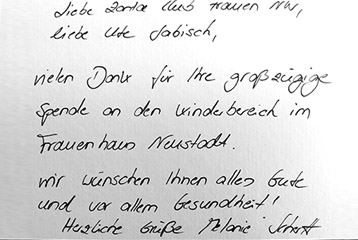 Liebe Zonta Club Frauen NW,
liebe Ute Jabisch,
vielen Dank für Ihre großzügige
Spende an den Kinderbereich im
Frauenhaus Neustadt.
Wir wünschen Ihnen alles Gute
und vor allem Gesundheit!
Herzliche Grüße Melanie